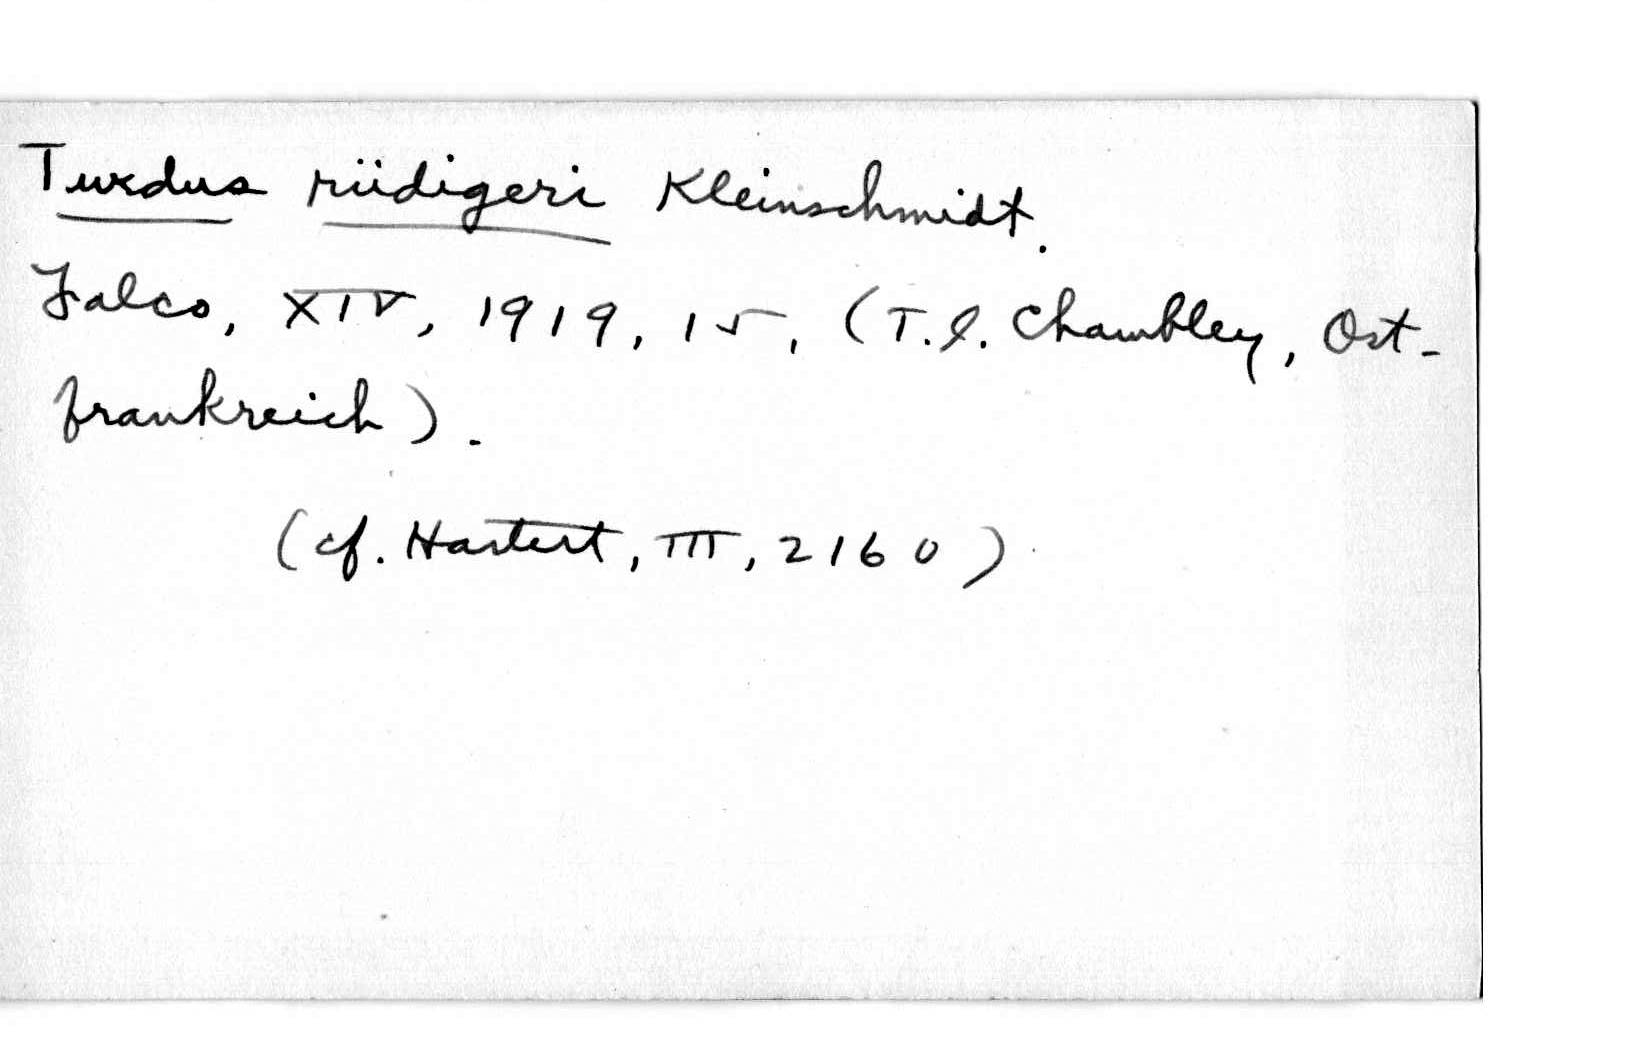 Turdus rüdigeri Kleinschmidt.
Falco, XIV, 1919, 15, (T.l. Chambley, Ost-
frankreich).
(cf. Hartert, III, 2160)